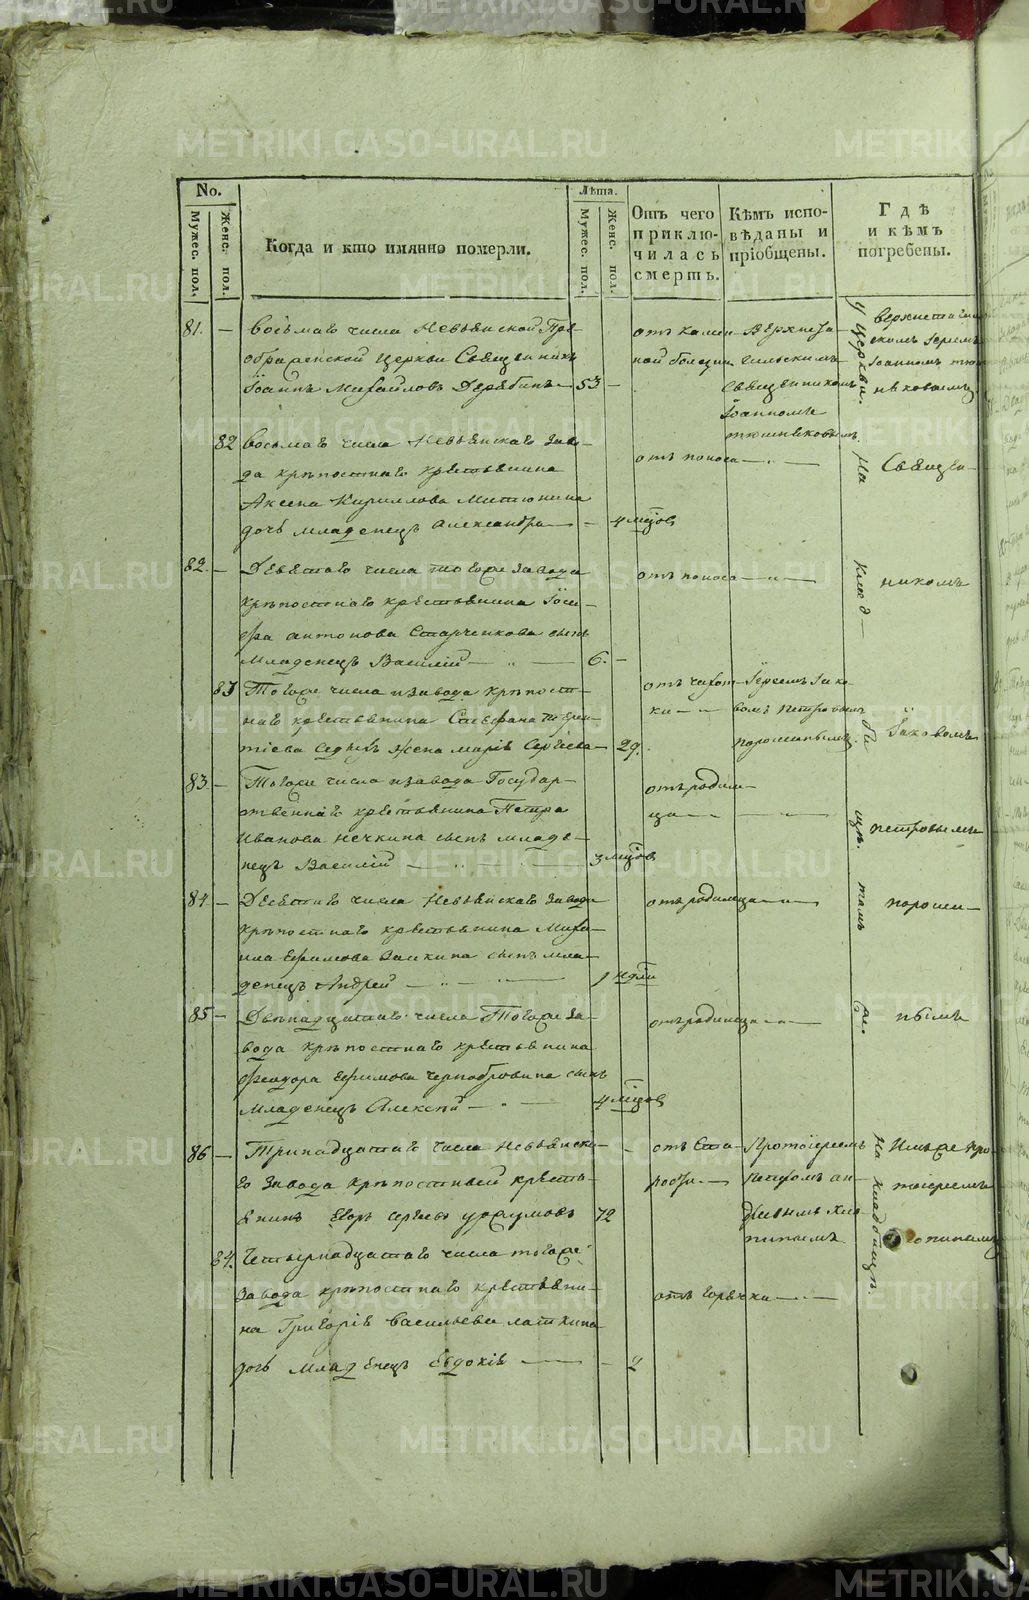 No.
Мужес. пол.
Женс. пол.
Когда и кто имянно померли.
Лѣта.
Мужес. пол.
Женс. пол.
Отъ чего приклю-
чилась
смерть.
Кѣмъ испо-
вѣданы и
пріобщены.
Гдѣ
и кѣмъ
погребены.
81. — восьмаго числа Невьянской Пре-
ображенской Церкви Священникъ
Іоаннъ Михайловъ Дерябинъ — 53 —
отъ камен-
ной болезни
Верхнета-
гильскимъ
Священникомъ
Іоанномъ
тюшняковымъ
у Церкви.
верхнетагиль-
скимъ Іереемъ
Іоанномъ тюш-
няковымъ
82 восьмаго числа Невьянскаго заво-
да крѣпостнаго крестьянина
Аксена Кирилова Митюнина
дочь младенецъ Александра — — 4 мцов
отъ поноса — „ —
На
Священ-
82. — Девятаго числа тогоже завода
крѣпостнаго крестьянина Іоси-
фа антонова Старченкова сынъ
младенецъ Василій — „ — 6. —
отъ поноса — „ —
клад
никомъ
83 Тогоже числа изавода крѣпост-
наго крестьянина Стефана
тіева Седыхъ жена марія Сергіева — 29.
отъ чахот-
ки — „ —
Іереемъ Іако-
вомъ Петровымъ
порошинымъ
би
Іаковомъ
83. — Тогоже числа изавода Государ-
ственнаго крестьянина Петра
Иванова нечкина сынъ младе-
нецъ Василій — „ — 3 мцов
отъ родим-
ца — „ —
щѣ.
петровымъ
84. — Десятаго числа Невьянскаго завода
крѣпостнаго крестьянина Миха-
ила Ефимова Заикина сынъ мла-
денецъ Андрей — „ — 1 ндли
отъ родимца — „ —
тамъ
пороши-
85 — Двѣнадцатаго числа Тогоже за-
вода крѣпостнаго крестьянина
Феодора Ефимова Чернобровина сынъ
младенецъ Алексѣй — „ — 4 мцов
отъ родимца — „ —
же.
нымъ
86 — Тринадцатаго числа Невьянска-
го завода крѣпостный кресть-
янинъ Егоръ Сергѣевъ 72
отъ Ста-
рости. —
Протоіереемъ
Петромъ
На кладбищѣ.
Имъ же про-
тоіереемъ
84. Четырнадцатаго числа тогоже
завода крѣпостнаго крестьяни-
на Григорія васильева латкина
дочь младенецъ Евдокія — — 2
отъ горячки — „ —